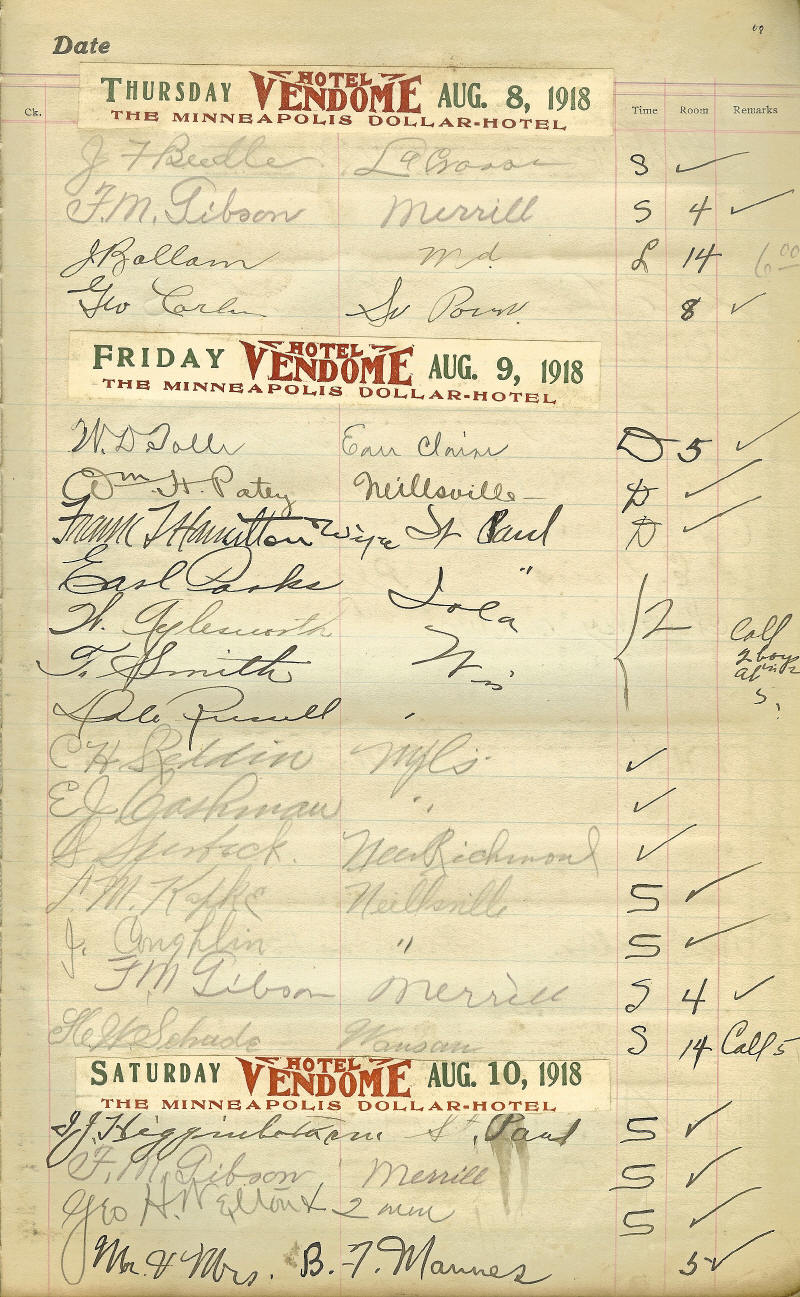 Date
Ck. Time Room Remarks
THURSDAY HOTEL VENDOME AUG. 8, 1918
THE MINNEAPOLIS DOLLAR-HOTEL
J F Beedle La Crosse S ✓
F.M. Gibson Merrill S 4 ✓
J Bollam Md. L 14 6 00
Geo 8 ✓
FRIDAY HOTEL VENDOME AUG. 9, 1918
THE MINNEAPOLIS DOLLAR-HOTEL
W. D Eau Claire D 5 ✓
Wm. H. Patey Neillsville D ✓
Frank T Hamilton Wife St Paul D ✓
Earl Parks Iola "
W. Aylesworth 2 Call
T. Smith Wis 2 boys
Dale Russell " 5.
C H Mpls ✓
E J Cashman " ✓
S New Richmond ✓
M. Kapke Neillsville S ✓
J. Coughlin " S ✓
F M Gibson Merrill S 4 ✓
H. W Schade Wausau S 14 Call 5
SATURDAY HOTEL VENDOME AUG. 10, 1918
THE MINNEAPOLIS DOLLAR-HOTEL
J J. Higginbotham St. Paul S ✓
F. M. Gibson Merrill S ✓
Geo H. Welton & 2 men S ✓
Mr. & Mrs. B. F. Mannes 5 ✓